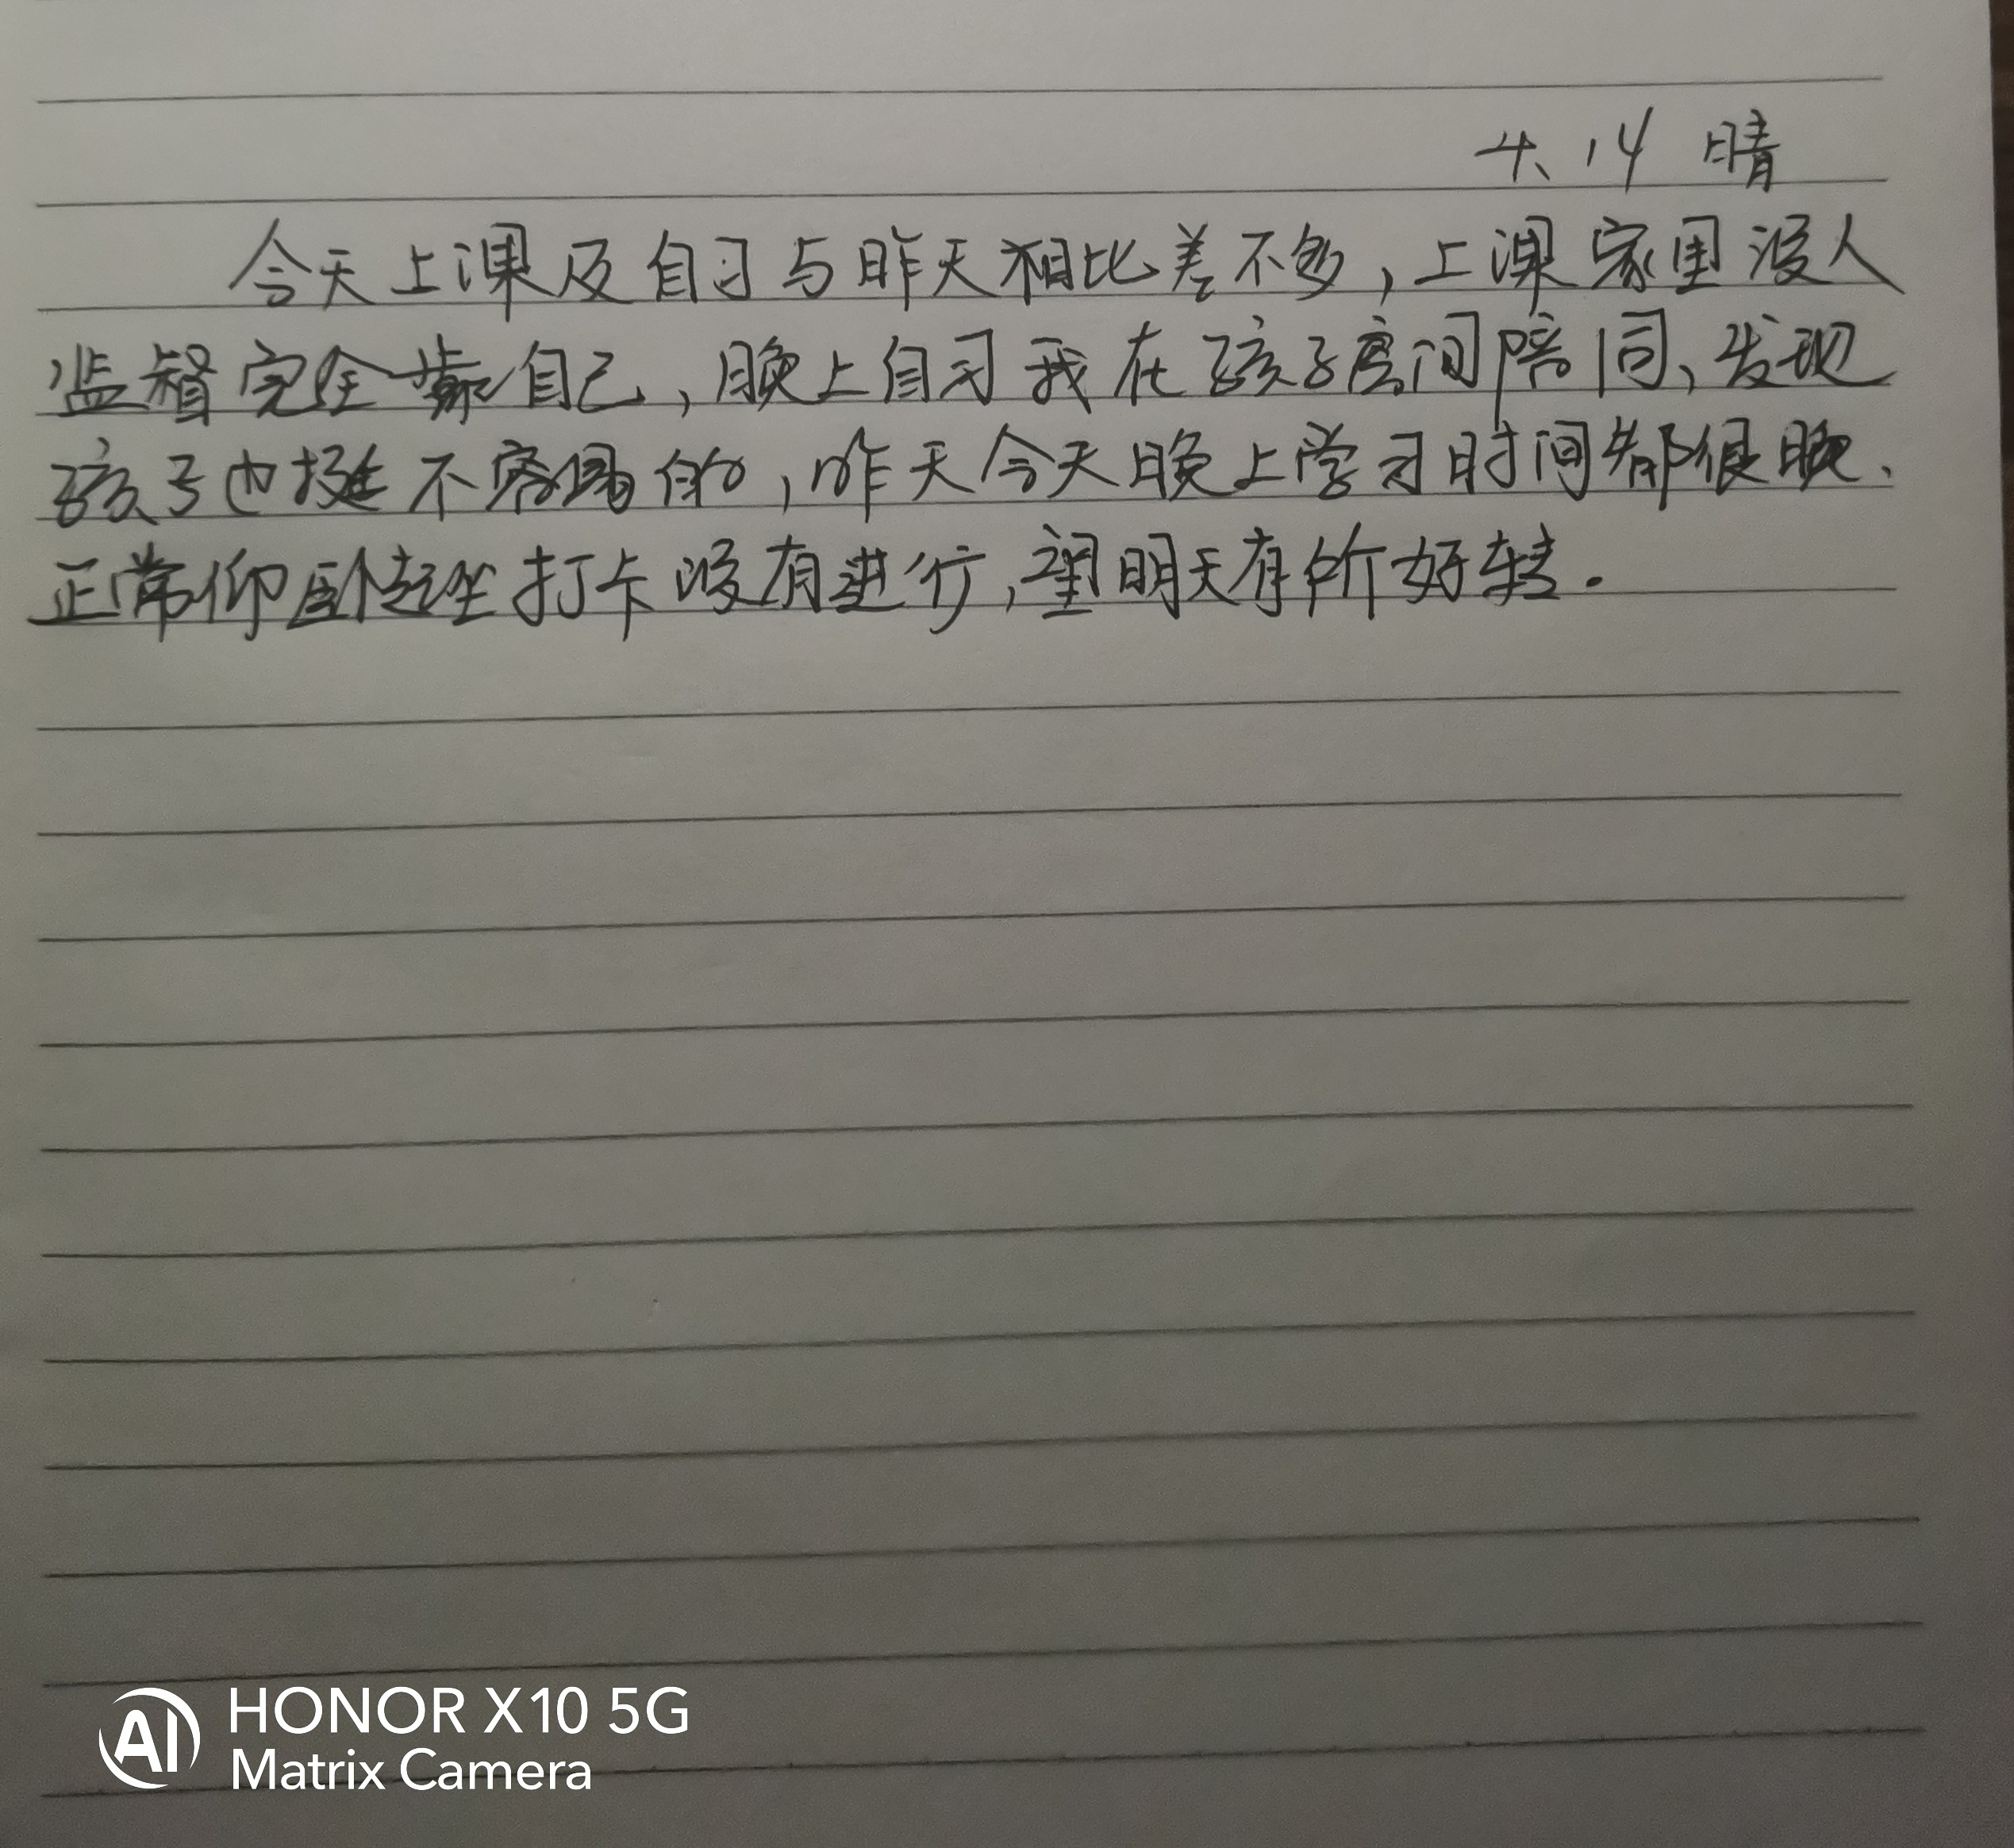 4、14 晴
今天上课及自习与昨天相比差不多,上课家里没人
监督完全靠自己,晚上自习我在孩子房间陪同、发现
孩子也挺不容易的,昨天今天晚上学习时间都很晚、
正常仰卧起坐打卡没有进行,望明天有所好转.
AI HONOR X10 5G
Matrix Camera